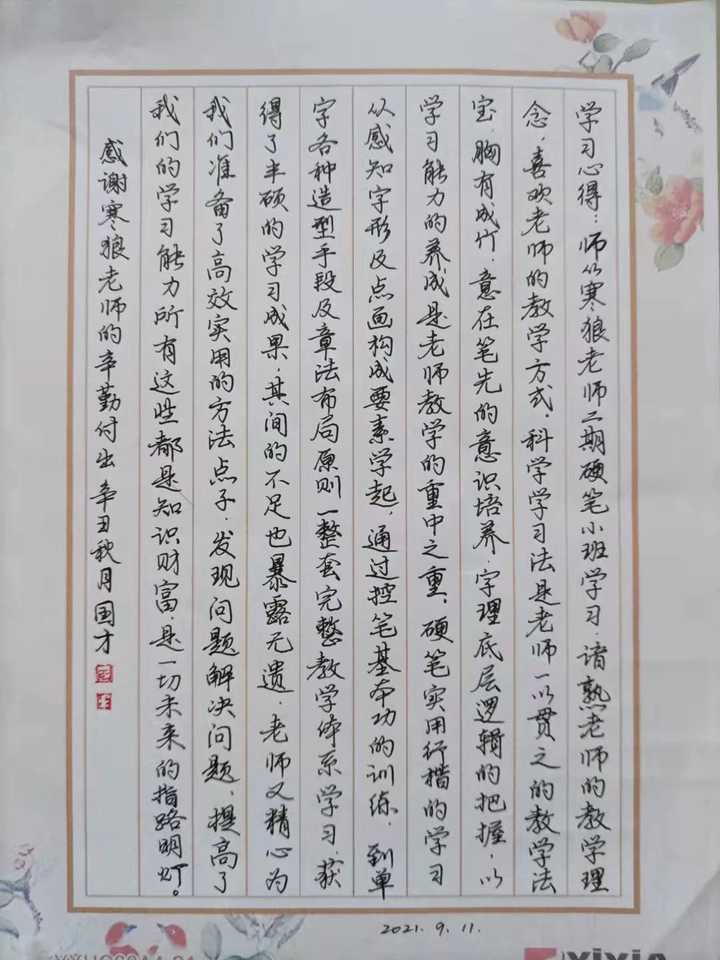 学习心得：师从寒狼老师二期硬笔小班学习，谙熟老师的教学理
念，喜欢老师的教学方式，科学学习法是老师一以贯之的教学法
宝，胸有成竹，意在笔先的意识培养，字理底层逻辑的把握，以
学习能力的养成是老师教学的重中之重，硬笔实用行楷的学习
从感知字形及点画构成要素学起，通过控笔基本功的训练，到单
字各种造型手段及章法布局原则一整套完整教学体系学习，获
得了丰硕的学习成果，其间的不足也暴露无遗，老师又精心为
我们准备了高效实用的方法点子，发现问题解决问题，提高了
我们的学习能力所有这些都是知识财富，是一切未来的指路明灯。
感谢寒狼老师的辛勤付出 辛丑秋月 国才
2021.9.11.
YiXin